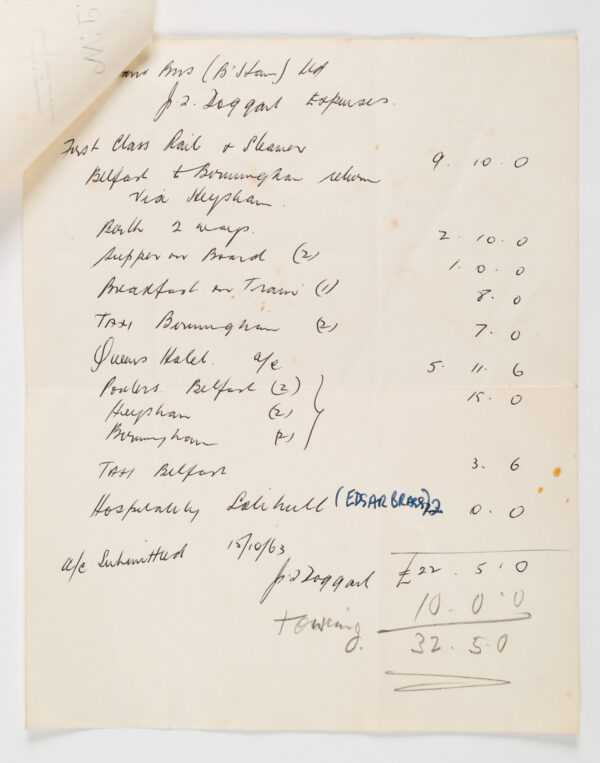 Bros (B'Ham) Ltd
J. L. Doggart Expenses.
First Class Rail & Steamer
Belfast to Birmingham return 9. 10. 0
via Heysham.
Berth 2 ways. 2. 10. 0
Supper on Board (2) 1. 0. 0
Breakfast on Train (1) 8. 0
TAXI Birmingham (2) 7. 0
Queens Hotel. a/c 5. 11. 6
Porters. Belfast (2) 15. 0
Heysham (2)
Birmingham (2)
TAXI Belfast 3. 6
Hospitality Solihull (EDGAR BRAGG) 2 0. 0
a/c Submitted 15/10/63
J. L. Doggart £22. 5. 0
10. 0. 0
towing. 32. 5. 0